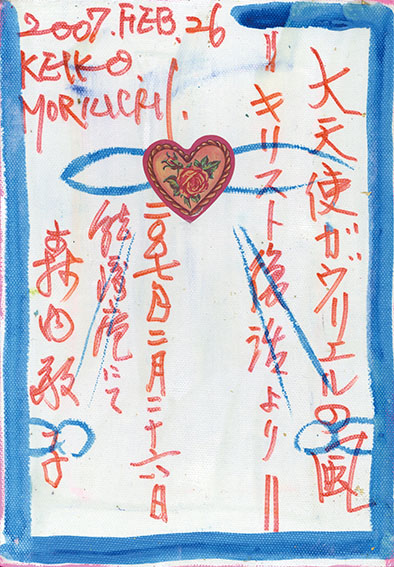 2007. FEB. 26
KEIKO
MORIUCHI.
大天使ガヴリエルの風
=キリスト より=
二〇〇七年二月二十六日
にて
森内敬子